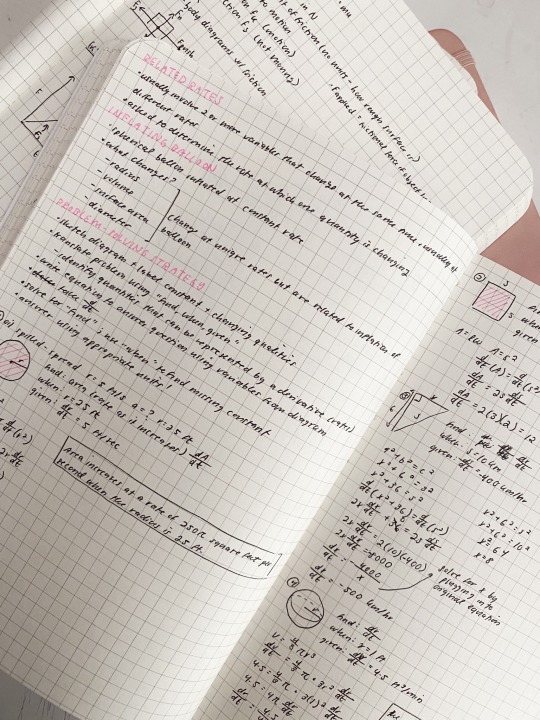 of friction (no units - how rough surface is)
body diagrams w/ friction
RELATED RATES
• usually involve 2 or more variables that change at the same time - usually at
different rates
• asked to determine the rate at which one quantity is changing
INFLATING BALLOON
• spherical balloon inflated at constant rate
• what changes?
- radius
- volume
- surface area
- diameter
change at unique rates but are related to inflation of
balloon
PROBLEM-SOLVING STRATEGY
• sketch diagram + label constant + changing quantities
• translate problem using "find, when, given"
- identify quantities that can be represented by a derivative (rates)
• write equation to answer question using variables from diagram
• take d/dt
• solve for "find"; use "when" to find missing constant
• answer using appropriate units!
oil spilled - spread r = 5 ft/s a = ? r = 25 ft
find: area (rate as it increases) dA/dt
when: r = 25 ft
given: dr/dt = 5 ft/sec
Area increases at a rate of 250π square feet per
second when the radius is 25 ft.
② s
s
A = lw A = s²
d/dt (A) = d/dt (s²)
dA/dt = 2s ds/dt
dA/dt = 2(3)(2) = 12
③ x
6
s
find: dx/dt
when: s = 10 km
given: ds/dt = -400 km/hr
a² + b² = c²
x² + 6² = s²
x² + 36 = s²
d/dt (x² + 36) = d/dt (s²)
2x dx/dt = 2s ds/dt
2x dx/dt = 2(10)(-400)
2x dx/dt = -8000
dx/dt = -4000/x
dx/dt = -500 km/hr
x² + 6² = s²
x² + 6² = 10²
x² = 64
x = 8
solve for x by
plugging into
original equation
④
find: dr/dt
when: r = 1 ft
given: dV/dt = 4.5 ft³/min
V = 4/3 πr³
dV/dt = 4/3 π · 3r² dr/dt
4.5 = 4/3 π · 3(1)² dr/dt
4.5 = 4π dr/dt